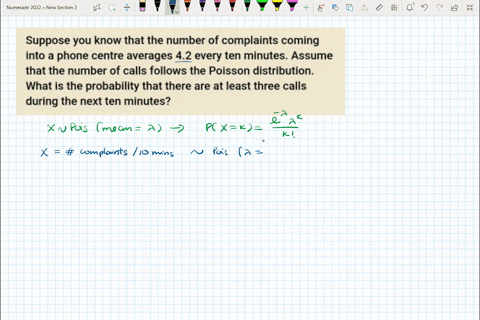 Numerade 2022 • New Section 2
Suppose you know that the number of complaints coming
into a phone centre averages 4.2 every ten minutes. Assume
that the number of calls follows the Poisson distribution.
What is the probability that there are at least three calls
during the next ten minutes?
X ~ Pois (mean = λ) → P(X=k) = e^-λ λ^k / k!
X = # complaints / 10 mins ~ Pois (λ =